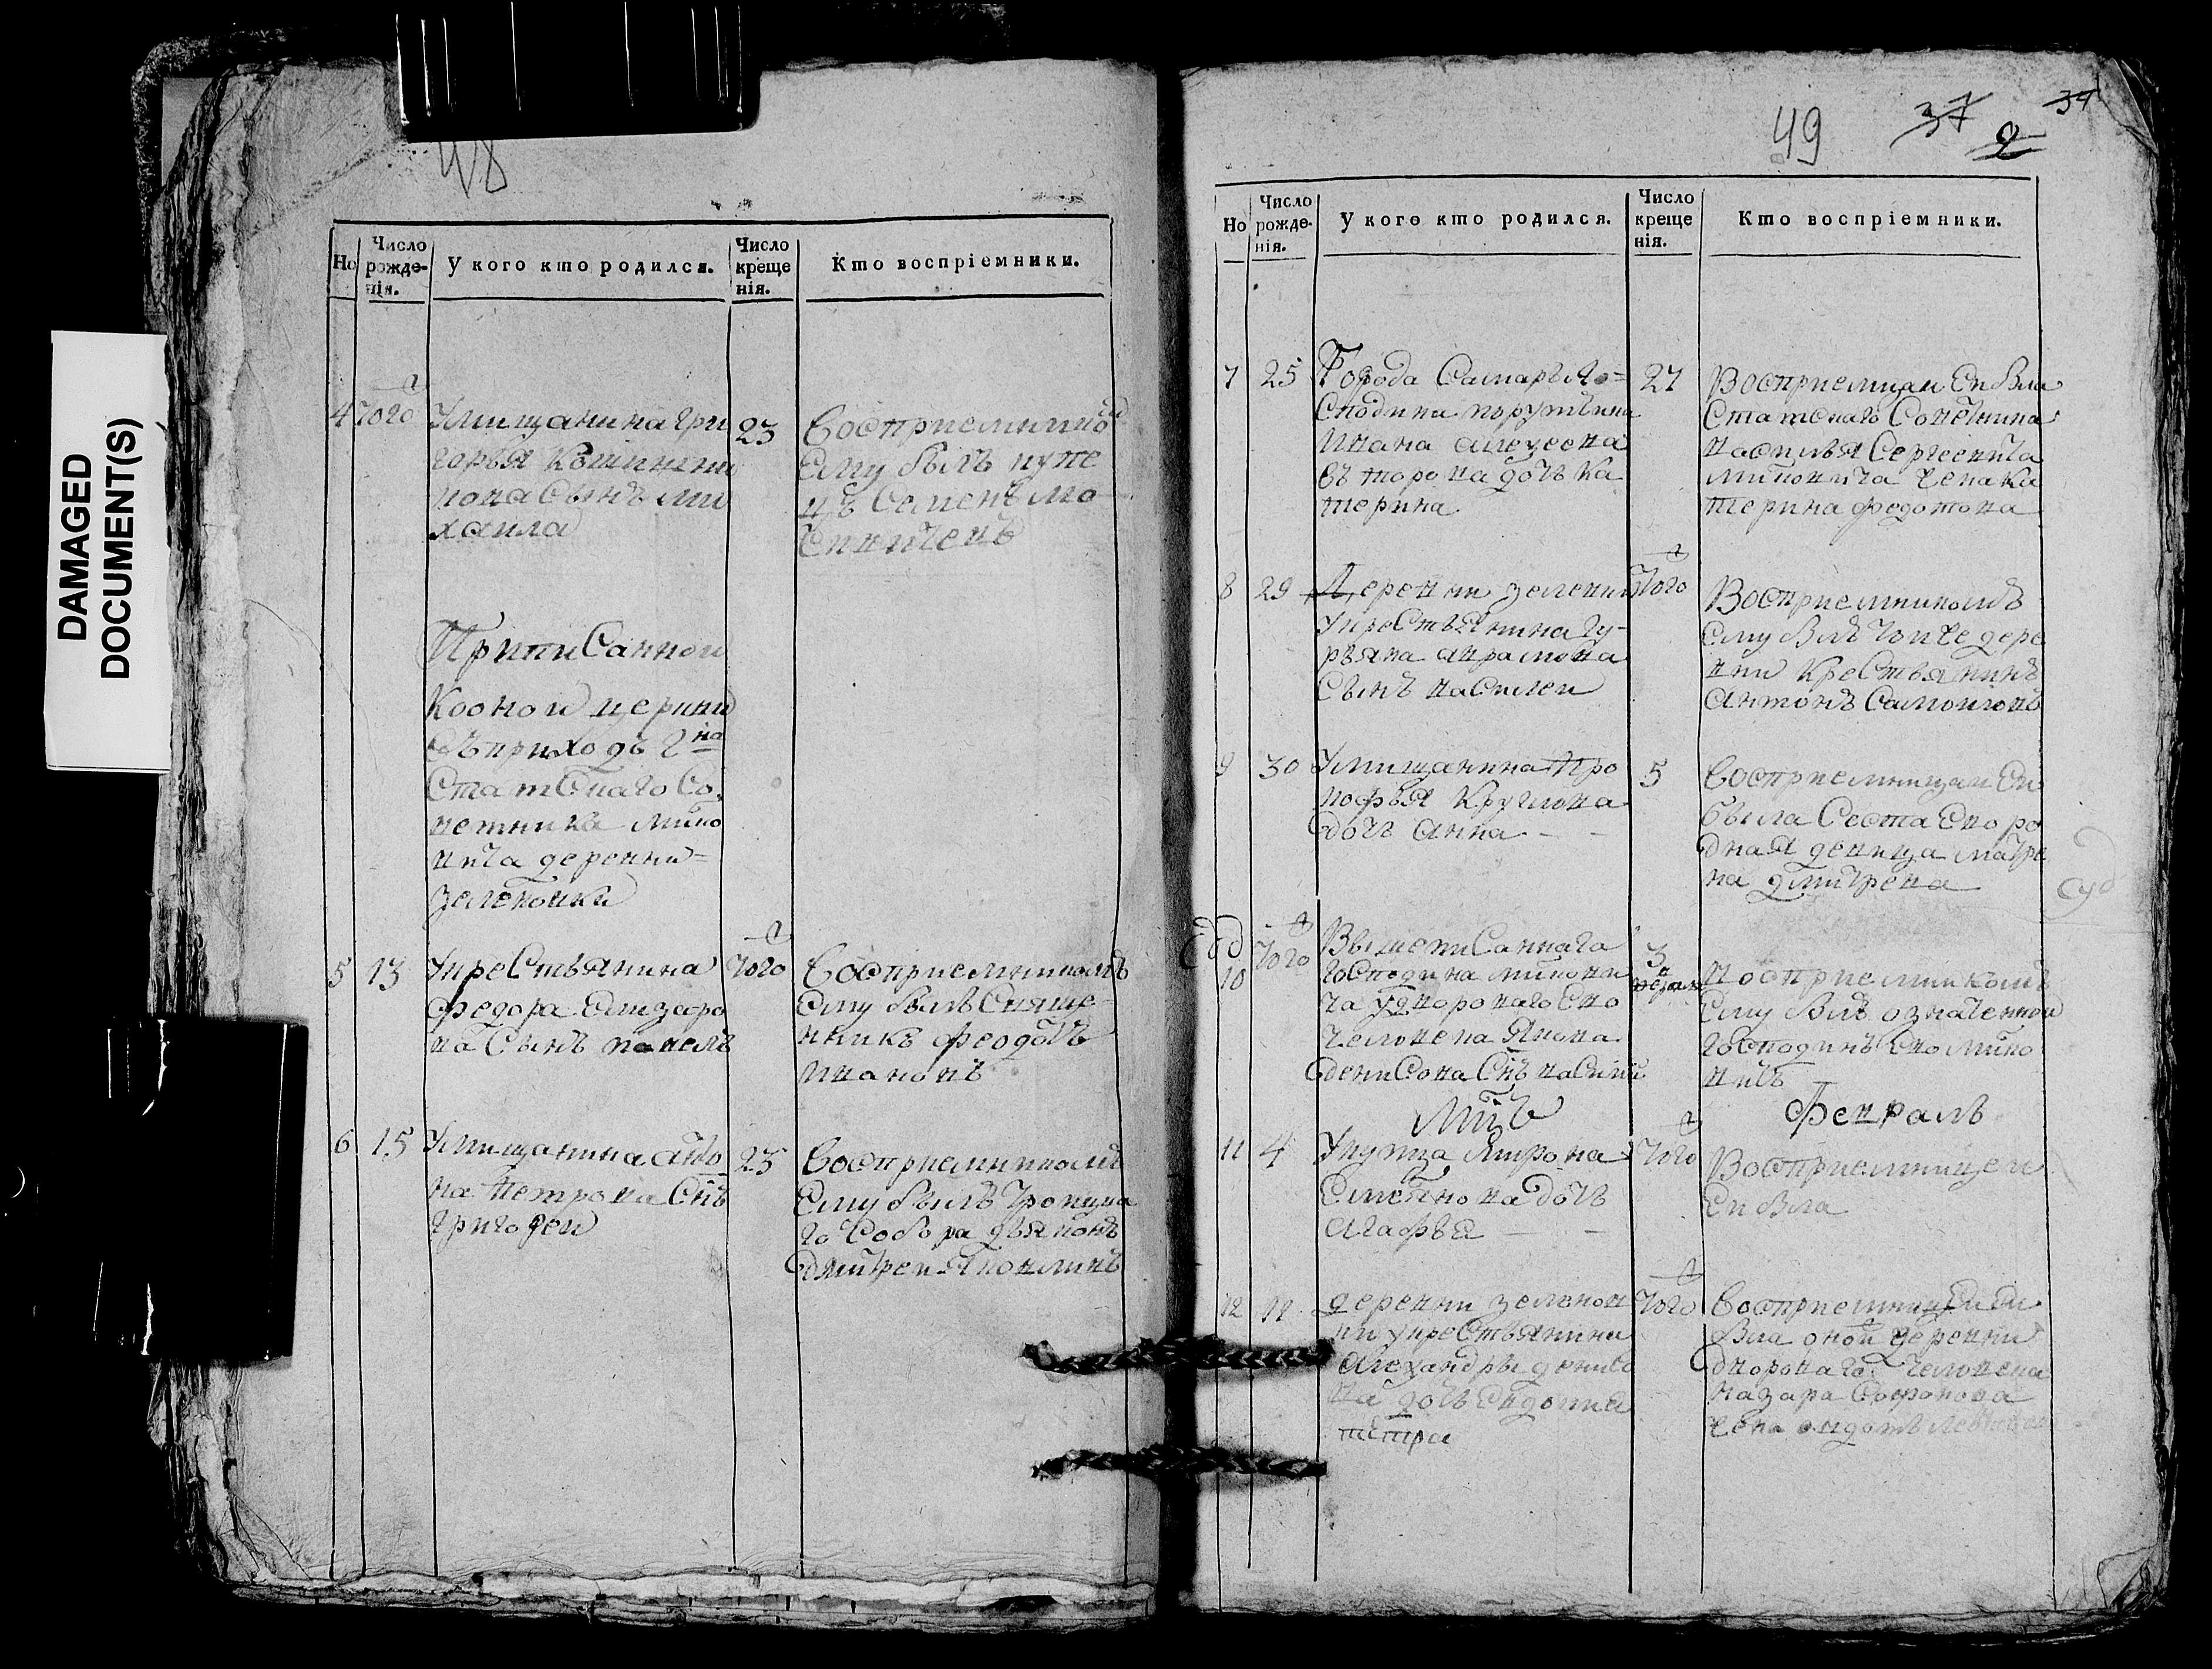 DAMAGED
DOCUMENT(S)
48
Но
Число рожде- нія.
У кого кто родился.
Число креще нія.
Кто воспріемники.
4 того
Умищанина гри
горья
нова Сынъ ми
хаила
23
Восприемнико
Ему былъ купе
цъ Семенъ мо
Приписанной
Кооной церкви
въприходъ Гна
Статскаго Со
ветника Мило
вича деревни
зеленовки
5 13
Укрестьянина
федора Елизаро
ва Сынъ павелъ
того
Восприемникомъ
Ему былъ Свяще
нникъ феодоръ
Ивановъ
6 15
Умищанина анто
на Петрова Снъ
григореи
25
Восприемникомъ
Ему былъ Троицка
го Собора дьяконъ
дмитреи Яковлинъ
49 37 34
9
Но
Число рожде- нія.
У кого кто родился.
Число креще нія.
Кто воспріемники.
7 25
Города Самары Го=
Сподина порутчика
Ивана алеѯеева
въторова дочь Ка
терина
27
Восприемницаи Еи бла
Статскаго Советника
василья Сергеевича
миловича жена Ка
терина федотова
8 29
Деревни зелени
укрестьянина гу-
рьяна аврамова
Сынъ василеи
того
Восприемникомъ
Ему блъ тоиже дере
вни крестьянинъ
антонъ Самоиловъ
9 30
Умищанина Про
кофья Круглова
дочь анна
5
Восприемницаи Еи
была Сестра Ево ро
дная девица матре
на дмитрева
10 того
Вышеписаннаго
господина милови
ча удворонаго Ево
человека Якова
денисова Снъ василии
3
Восприемникомъ
Ему блъ означеннои
господинъ Ево мило
вичъ
Мцъ Февраль
11 4
Укупца мирона
Семенова дочь
агафья
того
Восприемницеи
Еи бла
12 11
деревни зеленов
ки укрестьянина
алеѯандры денисо
ва дочь Евдокиа
того
Восприемницеи Еи
бла онои деревни
двороваго человека
назара Софонова
жена